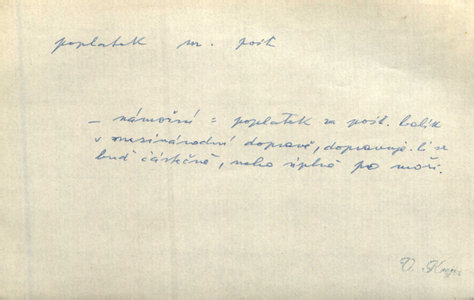 poplatek m. pošt
– námořní = poplatek za pošt. balík
v mezinárodní dopravě, dopravuje-li se
buď částečně, nebo úplně po moři.
V.